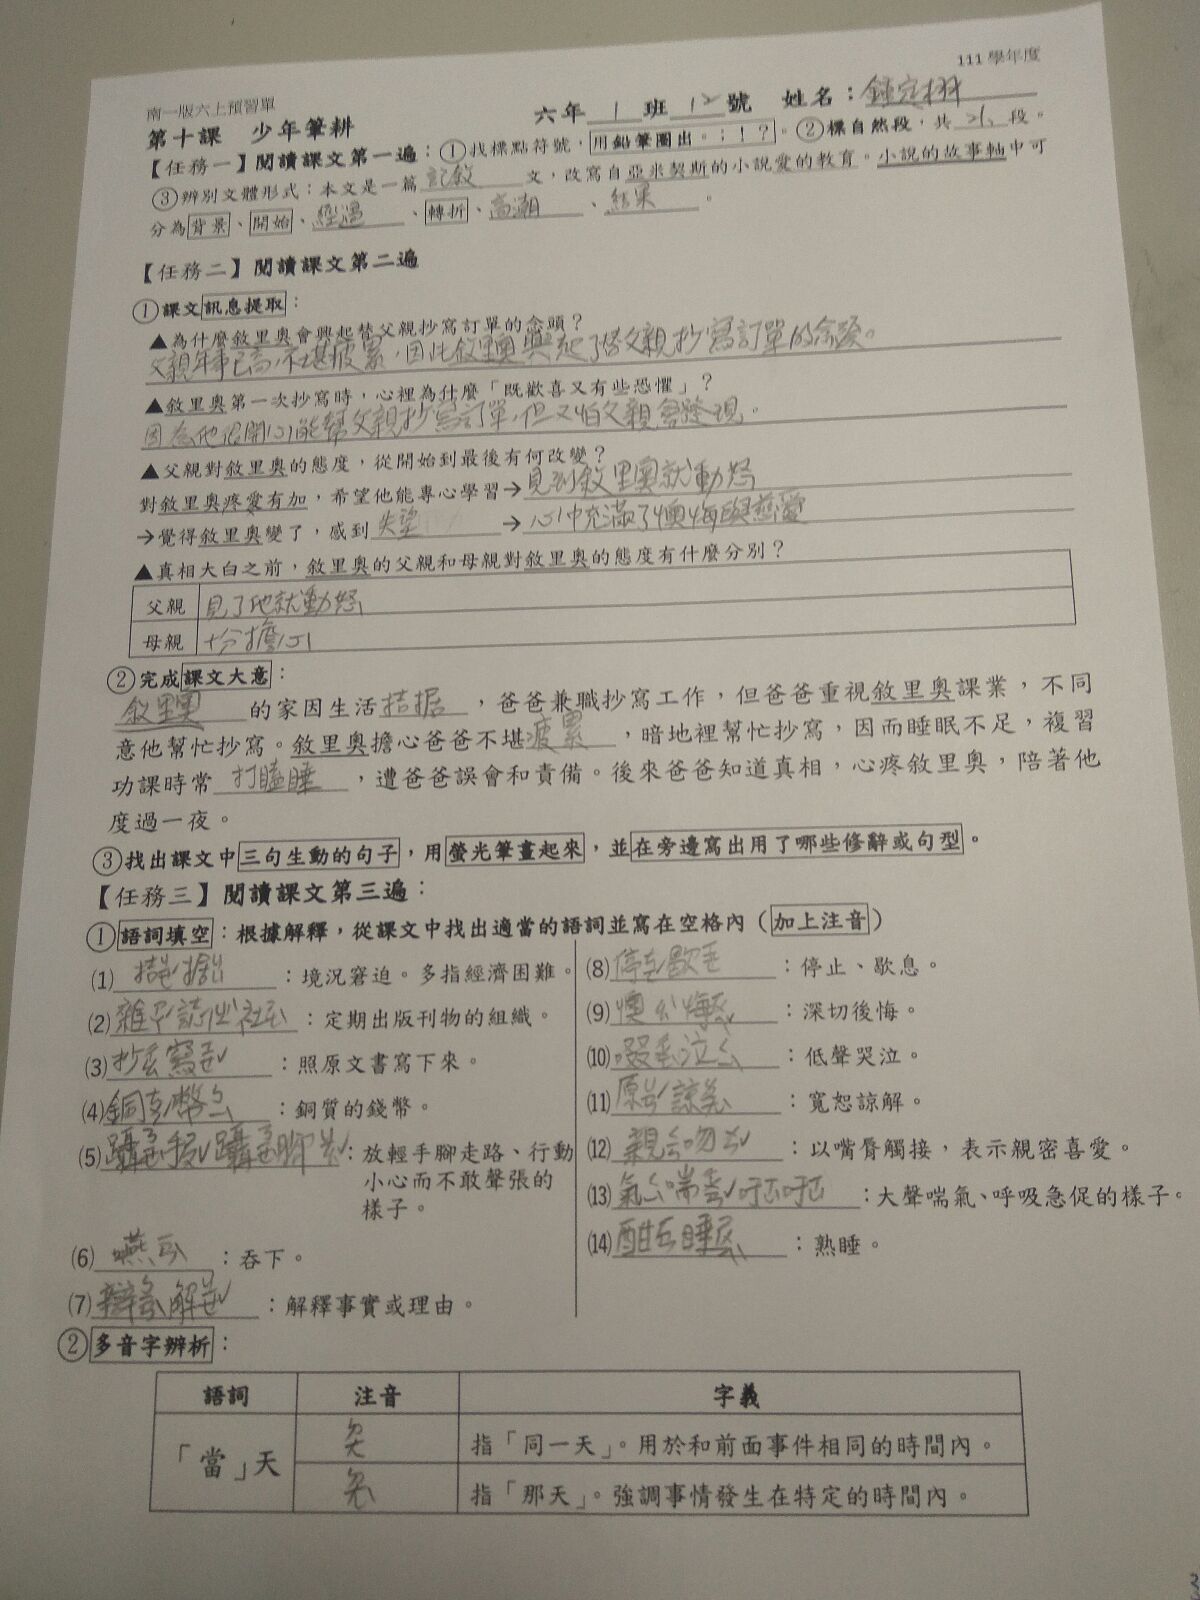 111 學年度
南一版六上預習單
第十課 少年筆耕 六年 1 班 12 號 姓名：
【任務一】閱讀課文第一遍：①找標點符號，用鉛筆圈出。；！？。②標自然段，共 段。
③辨別文體形式：本文是一篇 記敘 文，改寫自亞米契斯的小說愛的教育。小說的故事軸中可
分為背景、開始、經過、轉折、高潮、結果。
【任務二】閱讀課文第二遍
①課文訊息提取：
▲為什麼敘里奧會興起替父親抄寫訂單的念頭？
父親年事已高，不堪疲累，因此敘里奧興起了替父親抄寫訂單的念頭。
▲敘里奧第一次抄寫時，心裡為什麼「既歡喜又有些恐懼」？
因為他很開心能幫父親抄寫訂單，但又怕父親會發現。
▲父親對敘里奧的態度，從開始到最後有何改變？
對敘里奧疼愛有加，希望他能專心學習→見到敘里奧就動怒
→覺得敘里奧變了，感到 失望 →心中充滿了懊悔與慈愛
▲真相大白之前，敘里奧的父親和母親對敘里奧的態度有什麼分別？
父親 見了他就動怒
母親 十分擔心
②完成課文大意：
敘里奧 的家因生活 拮据 ，爸爸兼職抄寫工作，但爸爸重視敘里奧課業，不同
意他幫忙抄寫。敘里奧擔心爸爸不堪 疲累 ，暗地裡幫忙抄寫，因而睡眠不足，複習
功課時常 打瞌睡 ，遭爸爸誤會和責備。後來爸爸知道真相，心疼敘里奧，陪著他
度過一夜。
③找出課文中三句生動的句子，用螢光筆畫起來，並在旁邊寫出用了哪些修辭或句型。
【任務三】閱讀課文第三遍：
①語詞填空：根據解釋，從課文中找出適當的語詞並寫在空格內（加上注音）
(1) ：境況窘迫。多指經濟困難。
(2) 雜誌社 ：定期出版刊物的組織。
(3) 抄寫 ：照原文書寫下來。
(4) 銅幣 ：銅質的錢幣。
(5) 躡手躡腳 ：放輕手腳走路、行動
小心而不敢聲張的
樣子。
(6) 嚥 ：吞下。
(7) 辯解 ：解釋事實或理由。
(8) 停歇 ：停止、歇息。
(9) 懊悔 ：深切後悔。
(10) 啜泣 ：低聲哭泣。
(11) 原諒 ：寬恕諒解。
(12) 親吻 ：以嘴脣觸接，表示親密喜愛。
(13) 氣喘吁吁 ：大聲喘氣、呼吸急促的樣子。
(14) 酣睡 ：熟睡。
②多音字辨析：
語詞 注音 字義
「當」天
ㄉㄤ 指「同一天」。用於和前面事件相同的時間內。
指「那天」。強調事情發生在特定的時間內。